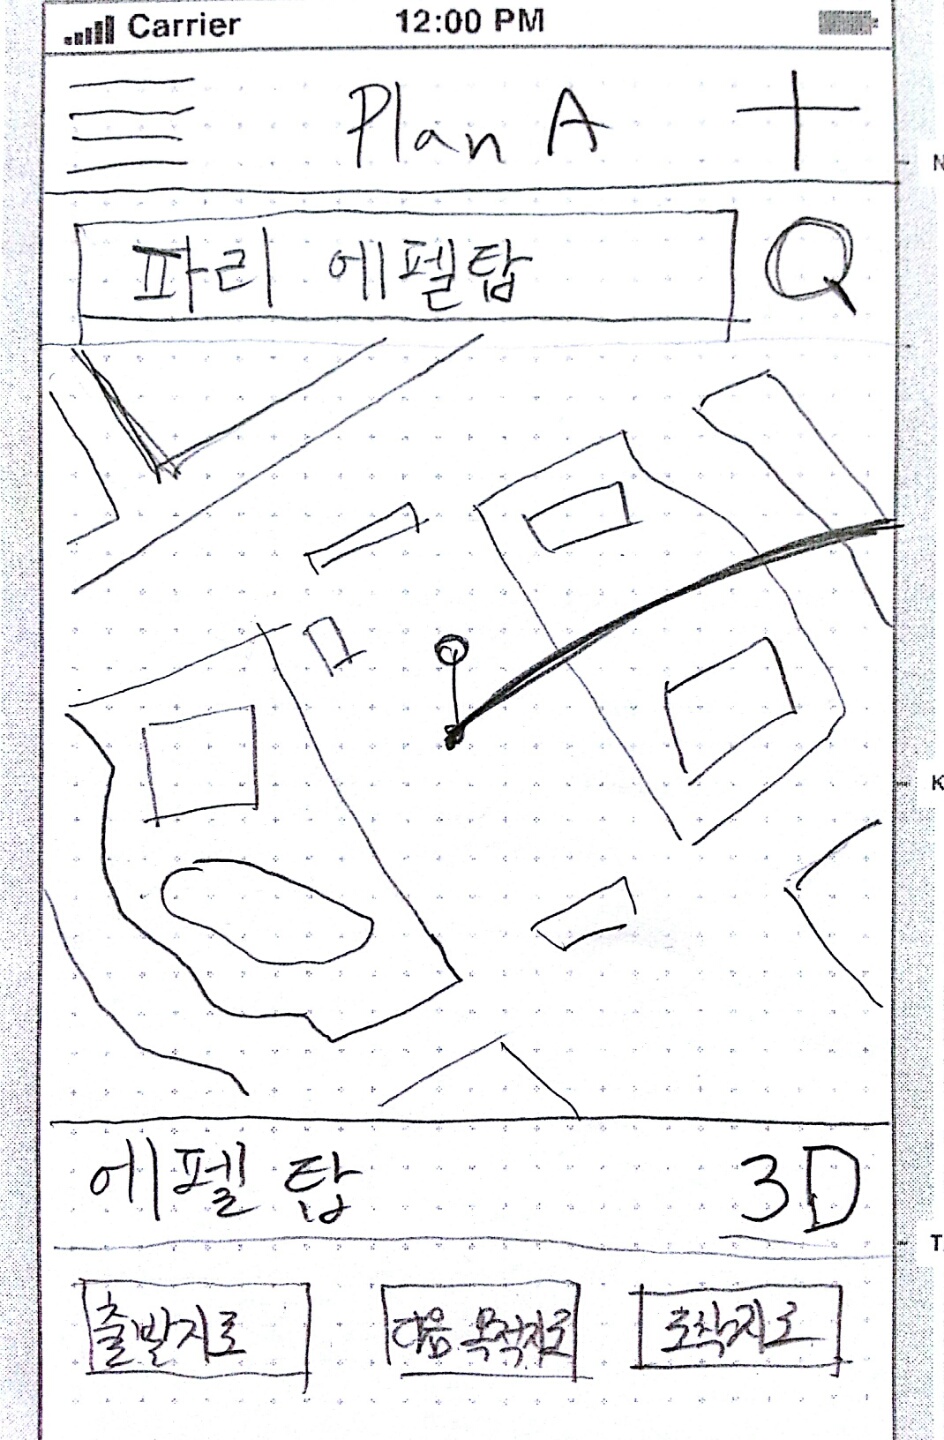 Carrier 12:00 PM
Plan A
파리 에펠탑
에펠탑 3D
출발지로 다음 목적지로 도착지로
N
K
T